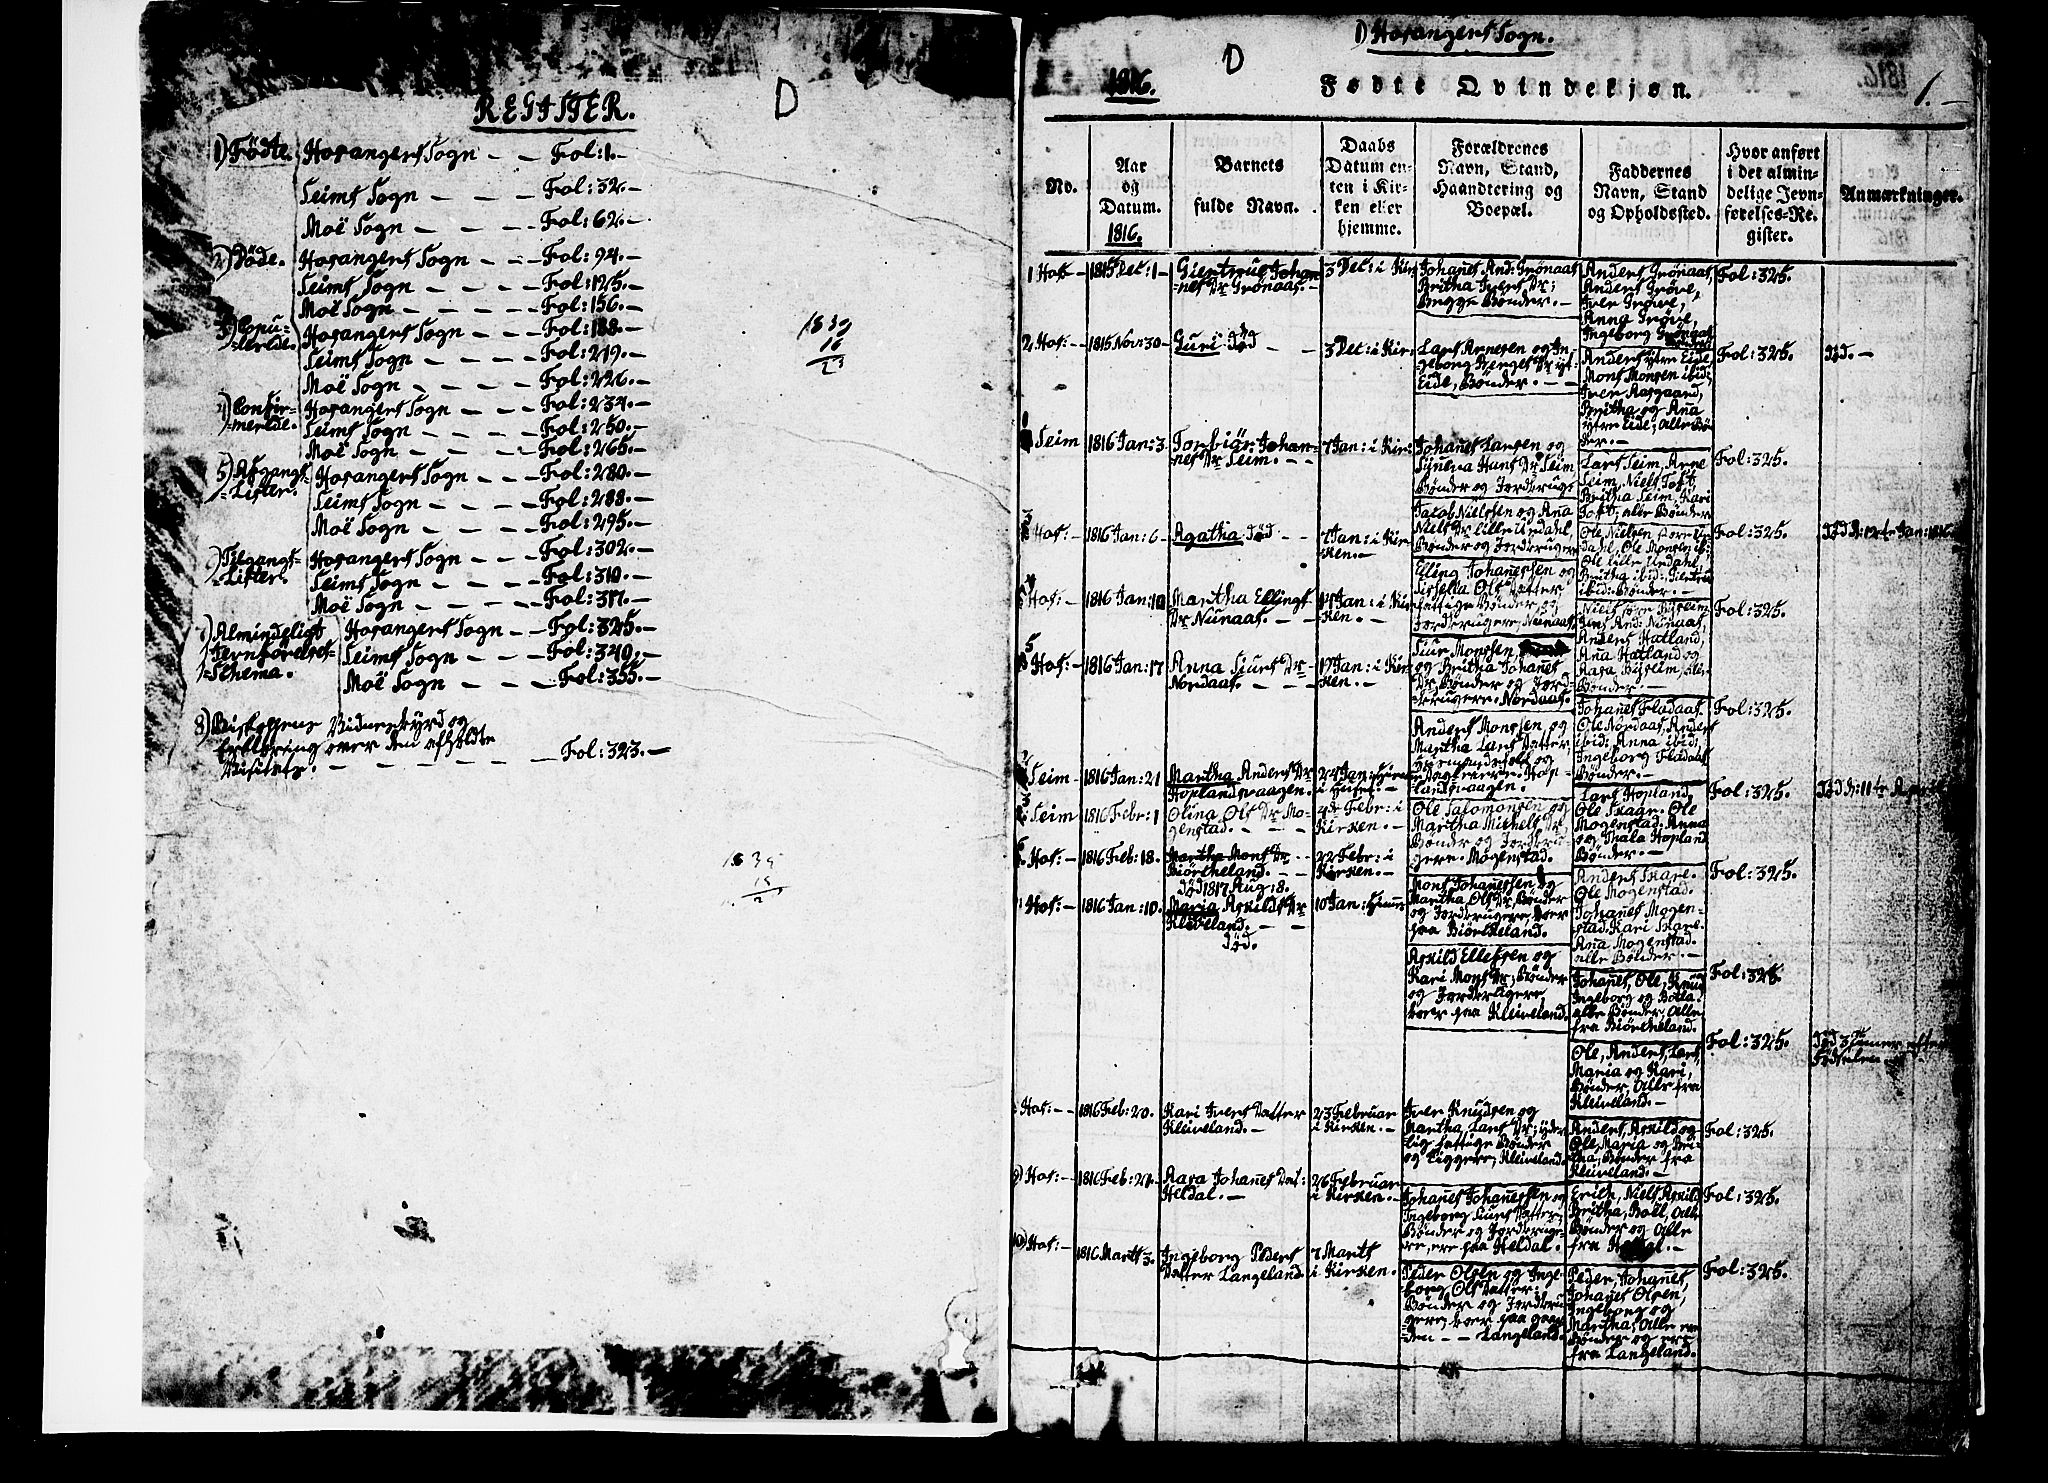 D
REGISTER.
1) Födte. Hosangers Sogn — — Fol: 1. —
Seims Sogn — — — Fol: 32. —
Moë Sogn — — — Fol: 62. —
2) Döde. Hosangers Sogn — — Fol: 94. —
Seims Sogn — — — Fol: 125. —
Moë Sogn — — — Fol: 156. —
3) Copu-
=lerede. Hosangers Sogn — — Fol: 188. —
Seims Sogn — — — Fol: 219. —
Moë Sogn — — — Fol: 226. —
4) Confir-
=merede. Hosangers Sogn — — Fol: 234. —
Seims Sogn — — — Fol: 250. —
Moë Sogn — — — Fol: 265. —
5) Afgangs
=Lister. Hosangers Sogn — — Fol: 280. —
Seims Sogn — — — Fol: 288. —
Moë Sogn — — — Fol: 295. —
Tilgangs
=Lister. Hosangers Sogn — — Fol: 302. —
Seims Sogn — — — Fol: 310. —
Moë Sogn — — — Fol: 317. —
7) Almindeligt
Jevnförelses=
=Schema. Hosangers Sogn — — Fol: 325. —
Seims Sogn — — — Fol: 340. —
Moë Sogn — — — Fol: 355. —
8) Biskoppens Vidnesbyrd og
Erklæring over den afholdte
Visitatz. — — — — — Fol: 323. —
1839
16
23
1839
1) Hosangers Sogn.
D
1816. Fødte Qvindekjøn. 1. —
No.
Aar og Datum. 1816.
Barnets fulde Navn.
Daabs Datum enten i Kirken eller hjemme.
Forældrenes Navn, Stand, Haandtering og Boepæl.
Faddernes Navn, Stand og Opholdssted.
Hvor anført i det almindelige Jevnførelses-Register.
Anmærkninger.
1 Hos: — 1815 Dec: 1 — Giertrue Johan
=nes Dr Grönaas. — 3 Dec: i Kir:
Johanes And: Grönaas
Britha Ivers Dr;
Begge Bönder. —
Anders Grönaas,
Anders Gröve,
Iver Gröve,
Anna Gröve,
Ingeborg Grönaas
Fol: 325.
2. Hos: — 1815 Nov: 30 — Guri död — — 3 Dec: i Kir:
Lars Arnesen og In-
=geborg
Eide, Bönder. — —
Anders ytre Eide
Mons Monsen ibid:
Iver Aasgaard,
Britha og Ana
ytre Eide; alle Bön
der. —
Fol: 325. Död. —
Seim 1816 Jan: 3. Torbiör Johan-
nes Dr Seim. — — 7 Jan: i Kir:
Johanes Larsen og
Syneva Hans Dr Seim
Bönder og Jordbrug:
Lars Seim, Arne
Seim, Niels Toft,
Britha Seim, Kari
Toft, alle Bönder
Fol: 325.
3 Hos: — 1816 Jan: 6 — Agatha död — 7 Jan: i Kir
ken. —
Jacob Nielssen og Ana
Niels Dr lille Urdahl,
Bönder og Jordbruger
Ole Nielsen store Ur
dahl, Ole Monsen ib:
Ole lille Urdahl,
Britha ibid: Giertrue
ibid: Bönder. —
Fol: 325. Död d: 12te Jan: 1816
4 Hos: — 1816 Jan: 10 Martha Ellings
Dr Nunaas. — — 14 Jan: i Kir
ken. —
Elling Johanessen og
Sissella Ols Datter
fattige Bönder og
Jordbrugere, Nunaas.
Niels Byseim
Jens And: Nunaas,
Anders Hatland,
Ana Hatland og
Aasa Byseim, Alle
Bönder. —
Fol: 325.
5 Hos: — 1816 Jan: 17 Anna Siurs Dr
Nordaas. — — — 19 Jan: i Kir
ken. —
Siur Monssen,
og Britha Johanes
Dr, Bönder og Jord-
=brugere. Nordaas.
Johanes Fladaas.
Ole Nordaas, Anders
ibid: Anna ibid;
Ingeborg Fladaas
Bönder. —
Fol: 325.
2 Seim — 1816 Jan: 21 Martha Anders Dr
Hoplandsvaagen.
Anders Monssen og
Martha Lars Datter
Hop-
landsvaagen.
Lars Hopland,
Ole Skaar. Ole
Mogenstad. Anna
og Thala Hopland
Bönder. —
Fol: 325. Död d: 11te April
3 Seim 1816 Febr: 1 Olina Ols Dr Mo-
genstad. — — — 4de Febr: i
Kirken. —
Ole Salomonsen og
Martha Michels Dr
Bönder og Jordbru
gere. Mogenstad.
Anders Skare.
Ole Mogenstad.
Johanes Mogen-
stad. Kari Skare
Ana Mogenstad.
alle Bönder. —
Fol: 325.
6 Hos: — 1816 Feb: 18. Martha Mons Dr —
Biörcheland. — —
död 1817 Aug: 8. 22 Febr: i
Kirken. —
Mons Johanessen og
Martha Ols Dr, Bönder
og Jordbrugere, boer
paa Biörcheland.
Johanes, Ole, Knud
Ingeborg og Botla
alle Bönder, Alle
fra Biörcheland.
Fol: 325.
Hos: — 1816 Jan: 10. Maria Askilds Dr
Kleiveland. — —
död. 10 Jan: hiemme
Askild Ellefsen og
Kari Mons Dr; Bönder
og Jorderligere,
boer paa Kleiveland.
Ole, Anders, Lars,
Maria og Kari,
Bönder, Alle fra
Kleiveland. —
Fol: 325. Död 3 timer efter
Födselen
Hos: — — 1816 Feb: 20. Kari Ivers Datter
Kleiveland. — 23 Februar
i Kirken. —
Iver Knudsen og
Martha Lars Dr; yder
lig fattige Bönder
og Liggere, Kleiveland.
Anders, Askild og
Ole, Maria og Bri-
tha, Bönder fra
Kleiveland. —
Fol: 325.
9) Hos: — 1816 Feb: 24. Aasa Johanes Dat:
Heldal. — 26 Februar
i Kirken. —
Johanes Johanessen og
Ingeborg Siurs Datter,
Bönder og Jordbruge-
re, ere paa Heldal.
Erich, Niels Askild
Britha, Boel, Alle
Bönder og Alle
fra Heldal. —
Fol: 325.
10) Hos: — 1816 Marts 3. Ingeborg Peders
Datter Langeland. 7 Marts
i Kirken. —
Peder Olsen og Inge-
=borg Ols Datter:
Bönder og Jordbru
gere, boer paa gaar
den — — Langeland.
Peder, Johanes,
Johanes Olsen,
Ingeborg og
Martha, Alle ere
Bönder og ere
fra Langeland.
Fol: 325.